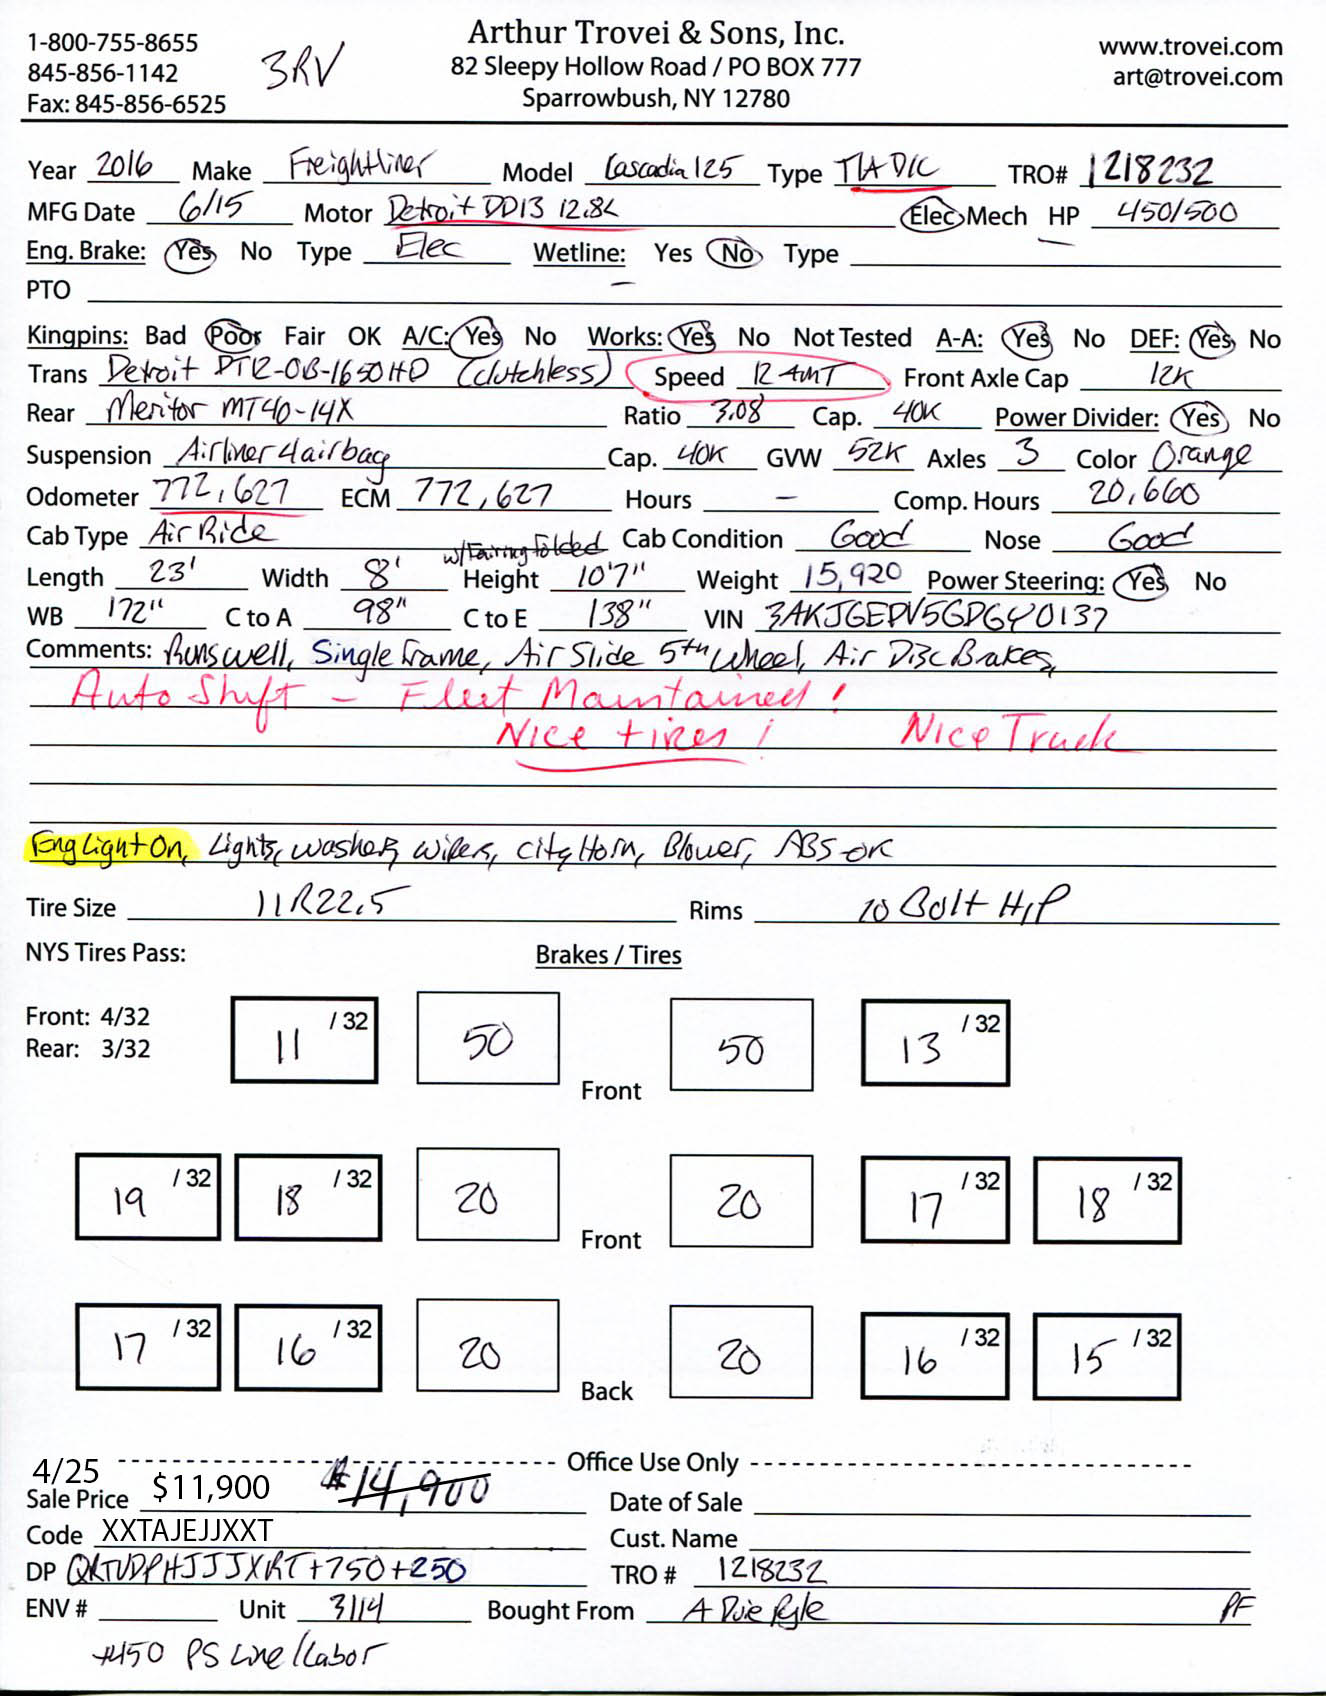 1-800-755-8655
845-856-1142
Fax: 845-856-6525
3RV
Arthur Trovei & Sons, Inc.
82 Sleepy Hollow Road / PO BOX 777
Sparrowbush, NY 12780
www.trovei.com
art@trovei.com
Year 2016 Make Freightliner Model Cascadia 125 Type T/A D/C TRO# 1218232
MFG Date 6/15 Motor Detroit DD13 12.8L Elec Mech HP 450/500
Eng. Brake: Yes No Type Elec Wetline: Yes No Type
PTO
Kingpins: Bad Poor Fair OK A/C: Yes No Works: Yes No Not Tested A-A: Yes No DEF: Yes No
Trans Detroit DT12-OB-1650HD (clutchless) Speed 12 AMT Front Axle Cap 12K
Rear Meritor MT40-14X Ratio 3.08 Cap. 40K Power Divider: Yes No
Suspension Airliner 4 airbag Cap. 40K GVW 52K Axles 3 Color Orange
Odometer 772,627 ECM 772,627 Hours – Comp. Hours 20,660
Cab Type Air Ride Cab Condition Good Nose Good
w/Fairing Folded
Length 23' Width 8' Height 10'7" Weight 15,920 Power Steering: Yes No
WB 172" C to A 98" C to E 138" VIN 3AKJGEDV5GDGY0137
Comments: Runs well, Single Frame, Air Slide 5th Wheel, Air Disc Brakes,
Auto Shift – Fleet Maintained!
Nice tires! Nice Truck
Eng Light On, Lights, washer, wipers, city Horn, Blower, ABS-OK
Tire Size 11R22.5 Rims 10 Bolt H/P
NYS Tires Pass: Brakes / Tires
Front: 4/32
Rear: 3/32
11 /32 50 Front 50 13 /32
19 /32 18 /32 20 Front 20 17 /32 18 /32
17 /32 16 /32 20 Back 20 16 /32 15 /32
Office Use Only
4/25
Sale Price $11,900 $14,900 Date of Sale
Code XXTAJEJJXXT Cust. Name
DP +750+250 TRO # 1218232
ENV # Unit 3114 Bought From A Duie Pyle PF
+450 PS Line/Labor